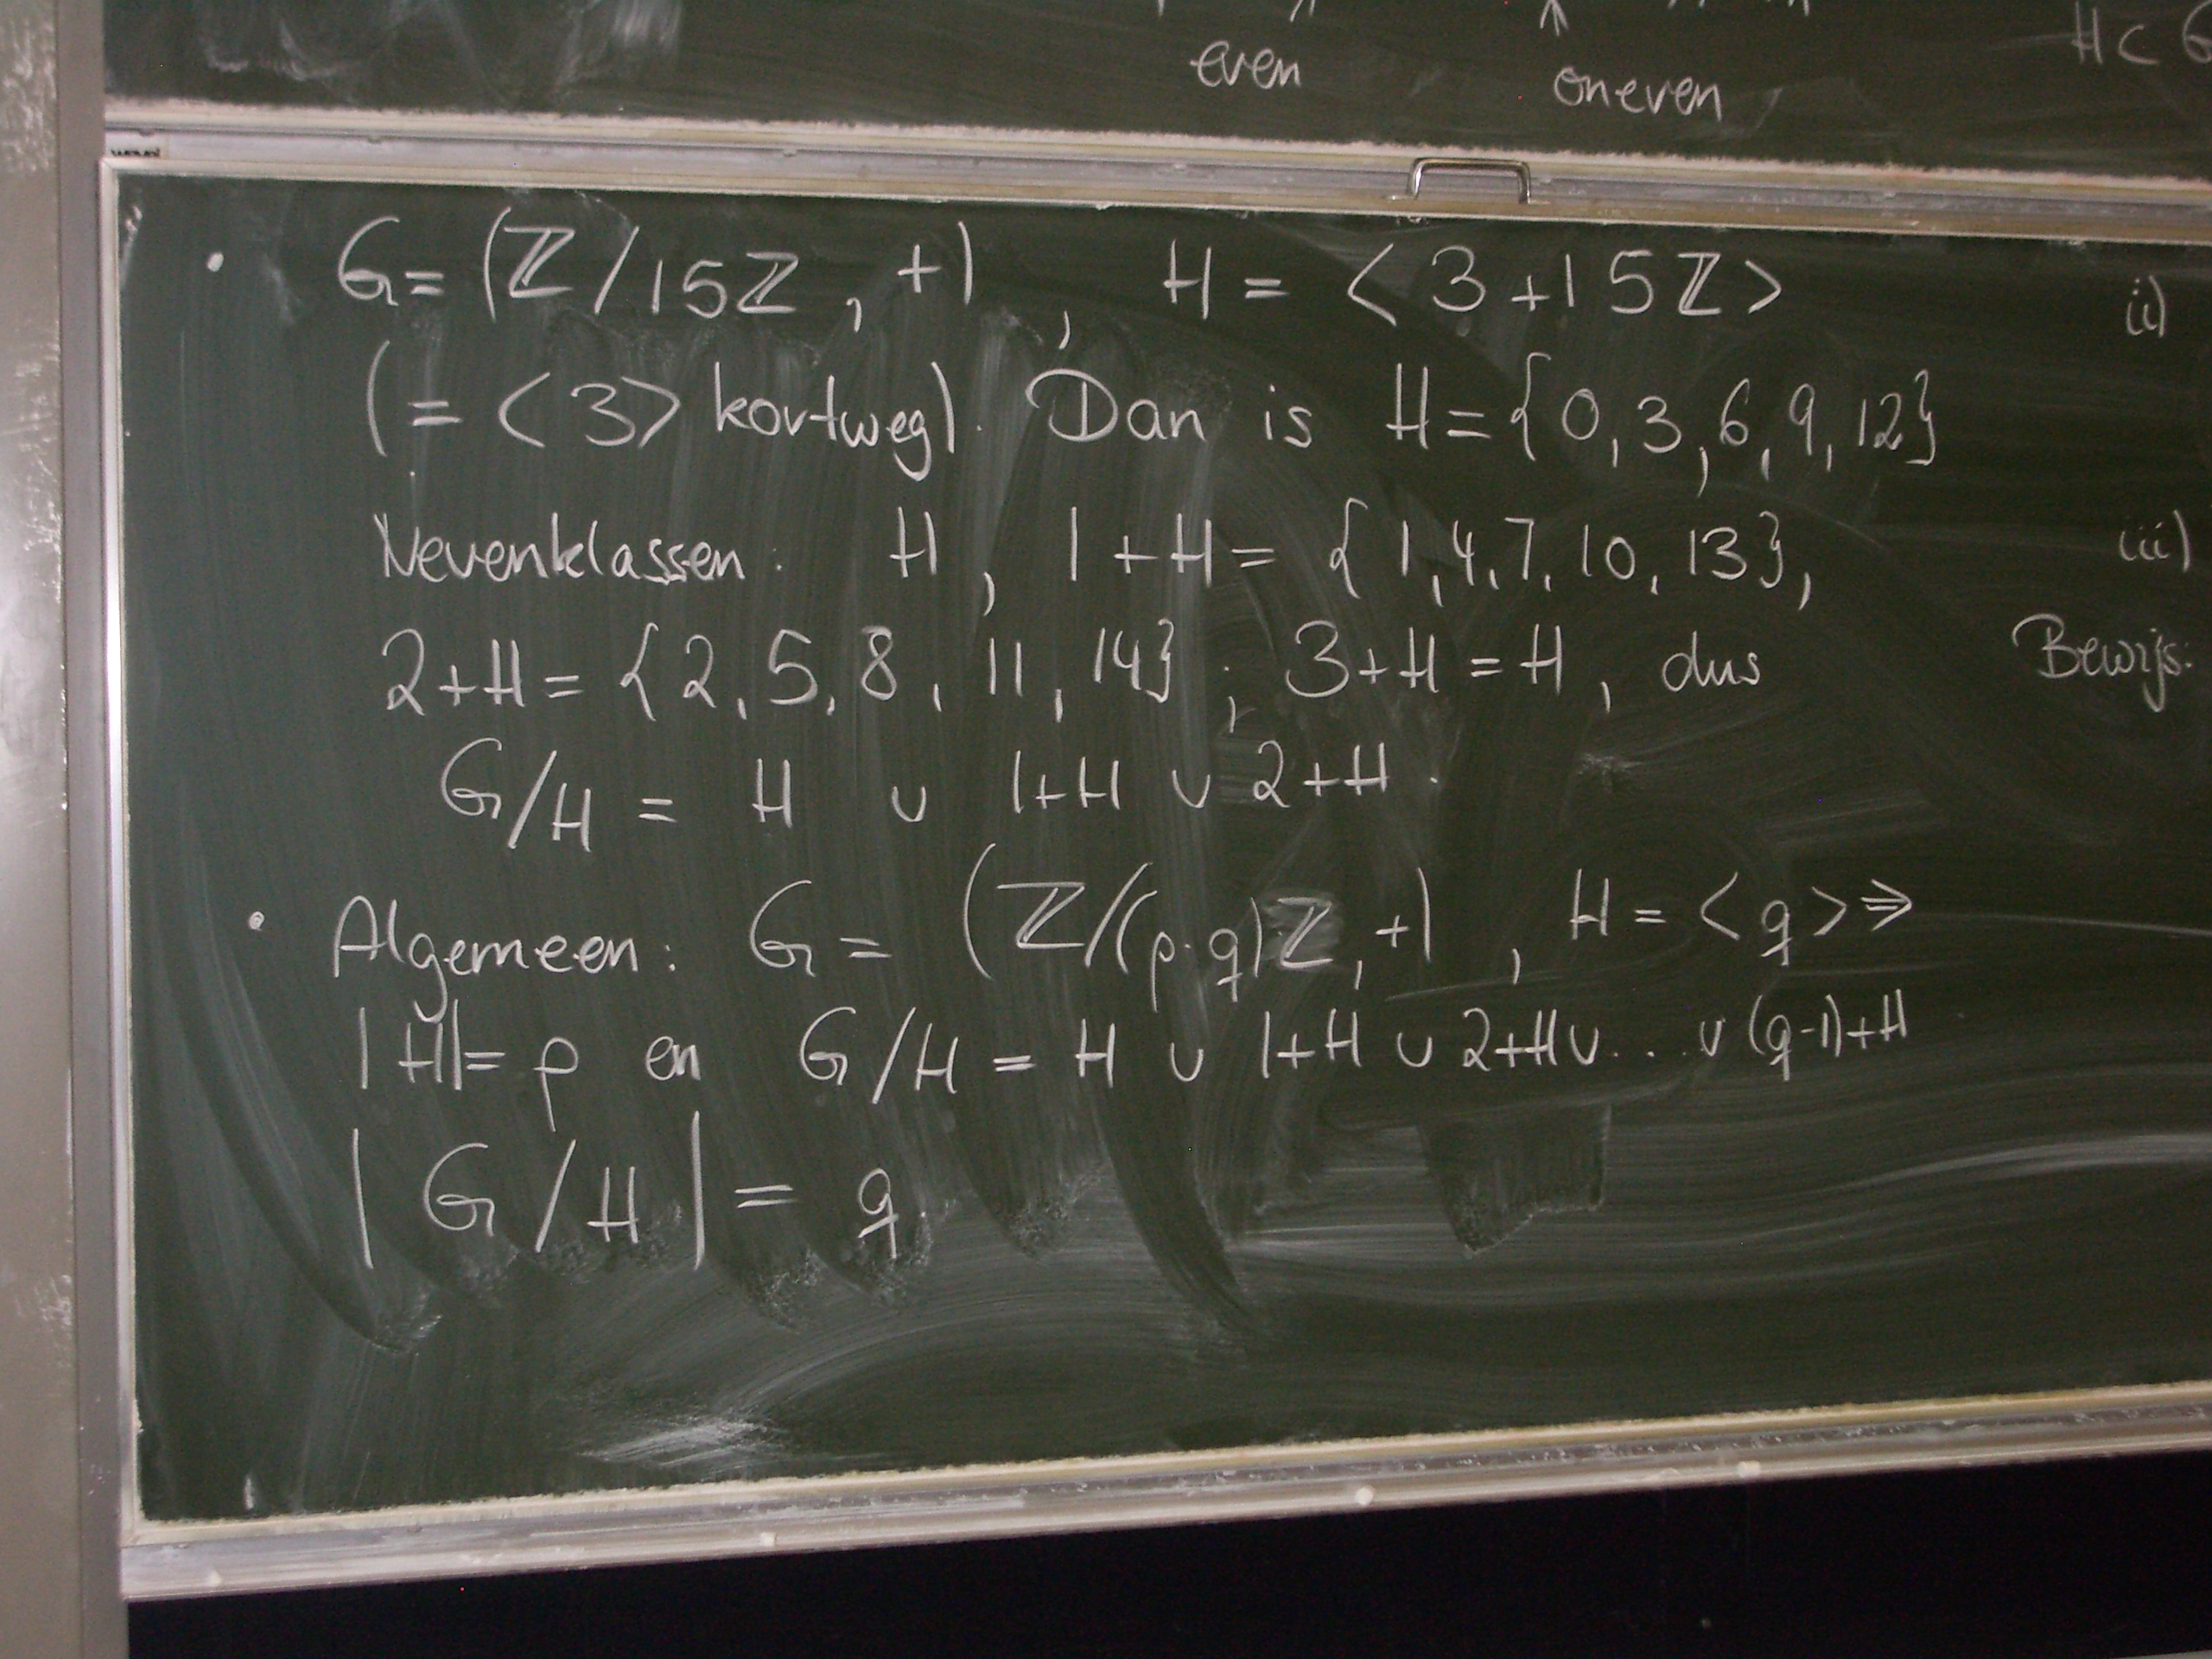 even oneven H ⊂ G
• G = (ℤ/15ℤ, +), H = <3+15ℤ>
(= <3> kortweg). Dan is H = {0, 3, 6, 9, 12}
Nevenklassen: H, 1+H = {1, 4, 7, 10, 13},
2+H = {2, 5, 8, 11, 14}; 3+H = H, dus
G/H = H ∪ 1+H ∪ 2+H.
• Algemeen: G = (ℤ/(p·q)ℤ, +), H = <q> ⇒
|H| = p en G/H = H ∪ 1+H ∪ 2+H ∪ ... ∪ (q-1)+H
|G/H| = q
ii)
iii)
Bewijs: